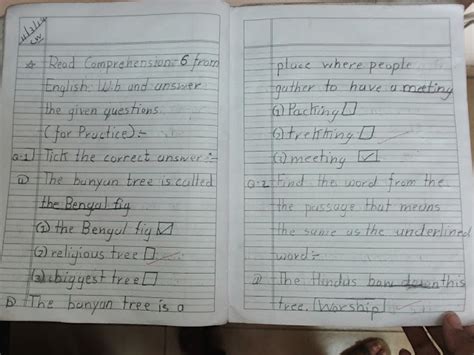 CW
☆ Read Comprehension:- 6 from
English W.b and answer
the given questions
(for Practice):-
Q-1 Tick the correct answer:-
a) The bunyan tree is called
the Bengal fig
(1) the Bengal fig ☑
(2) religious tree ☐
(3) biggest tree ☐
b) The bunyan tree is a
place where people
gather to have a meeting
(1) Packing ☐
(2) trekking ☐
(3) meeting ☑
Q-2 Find the word from the
the passage that means
the same as the underlined
word:-
a) The Hindus bow down this
tree. [Worship]